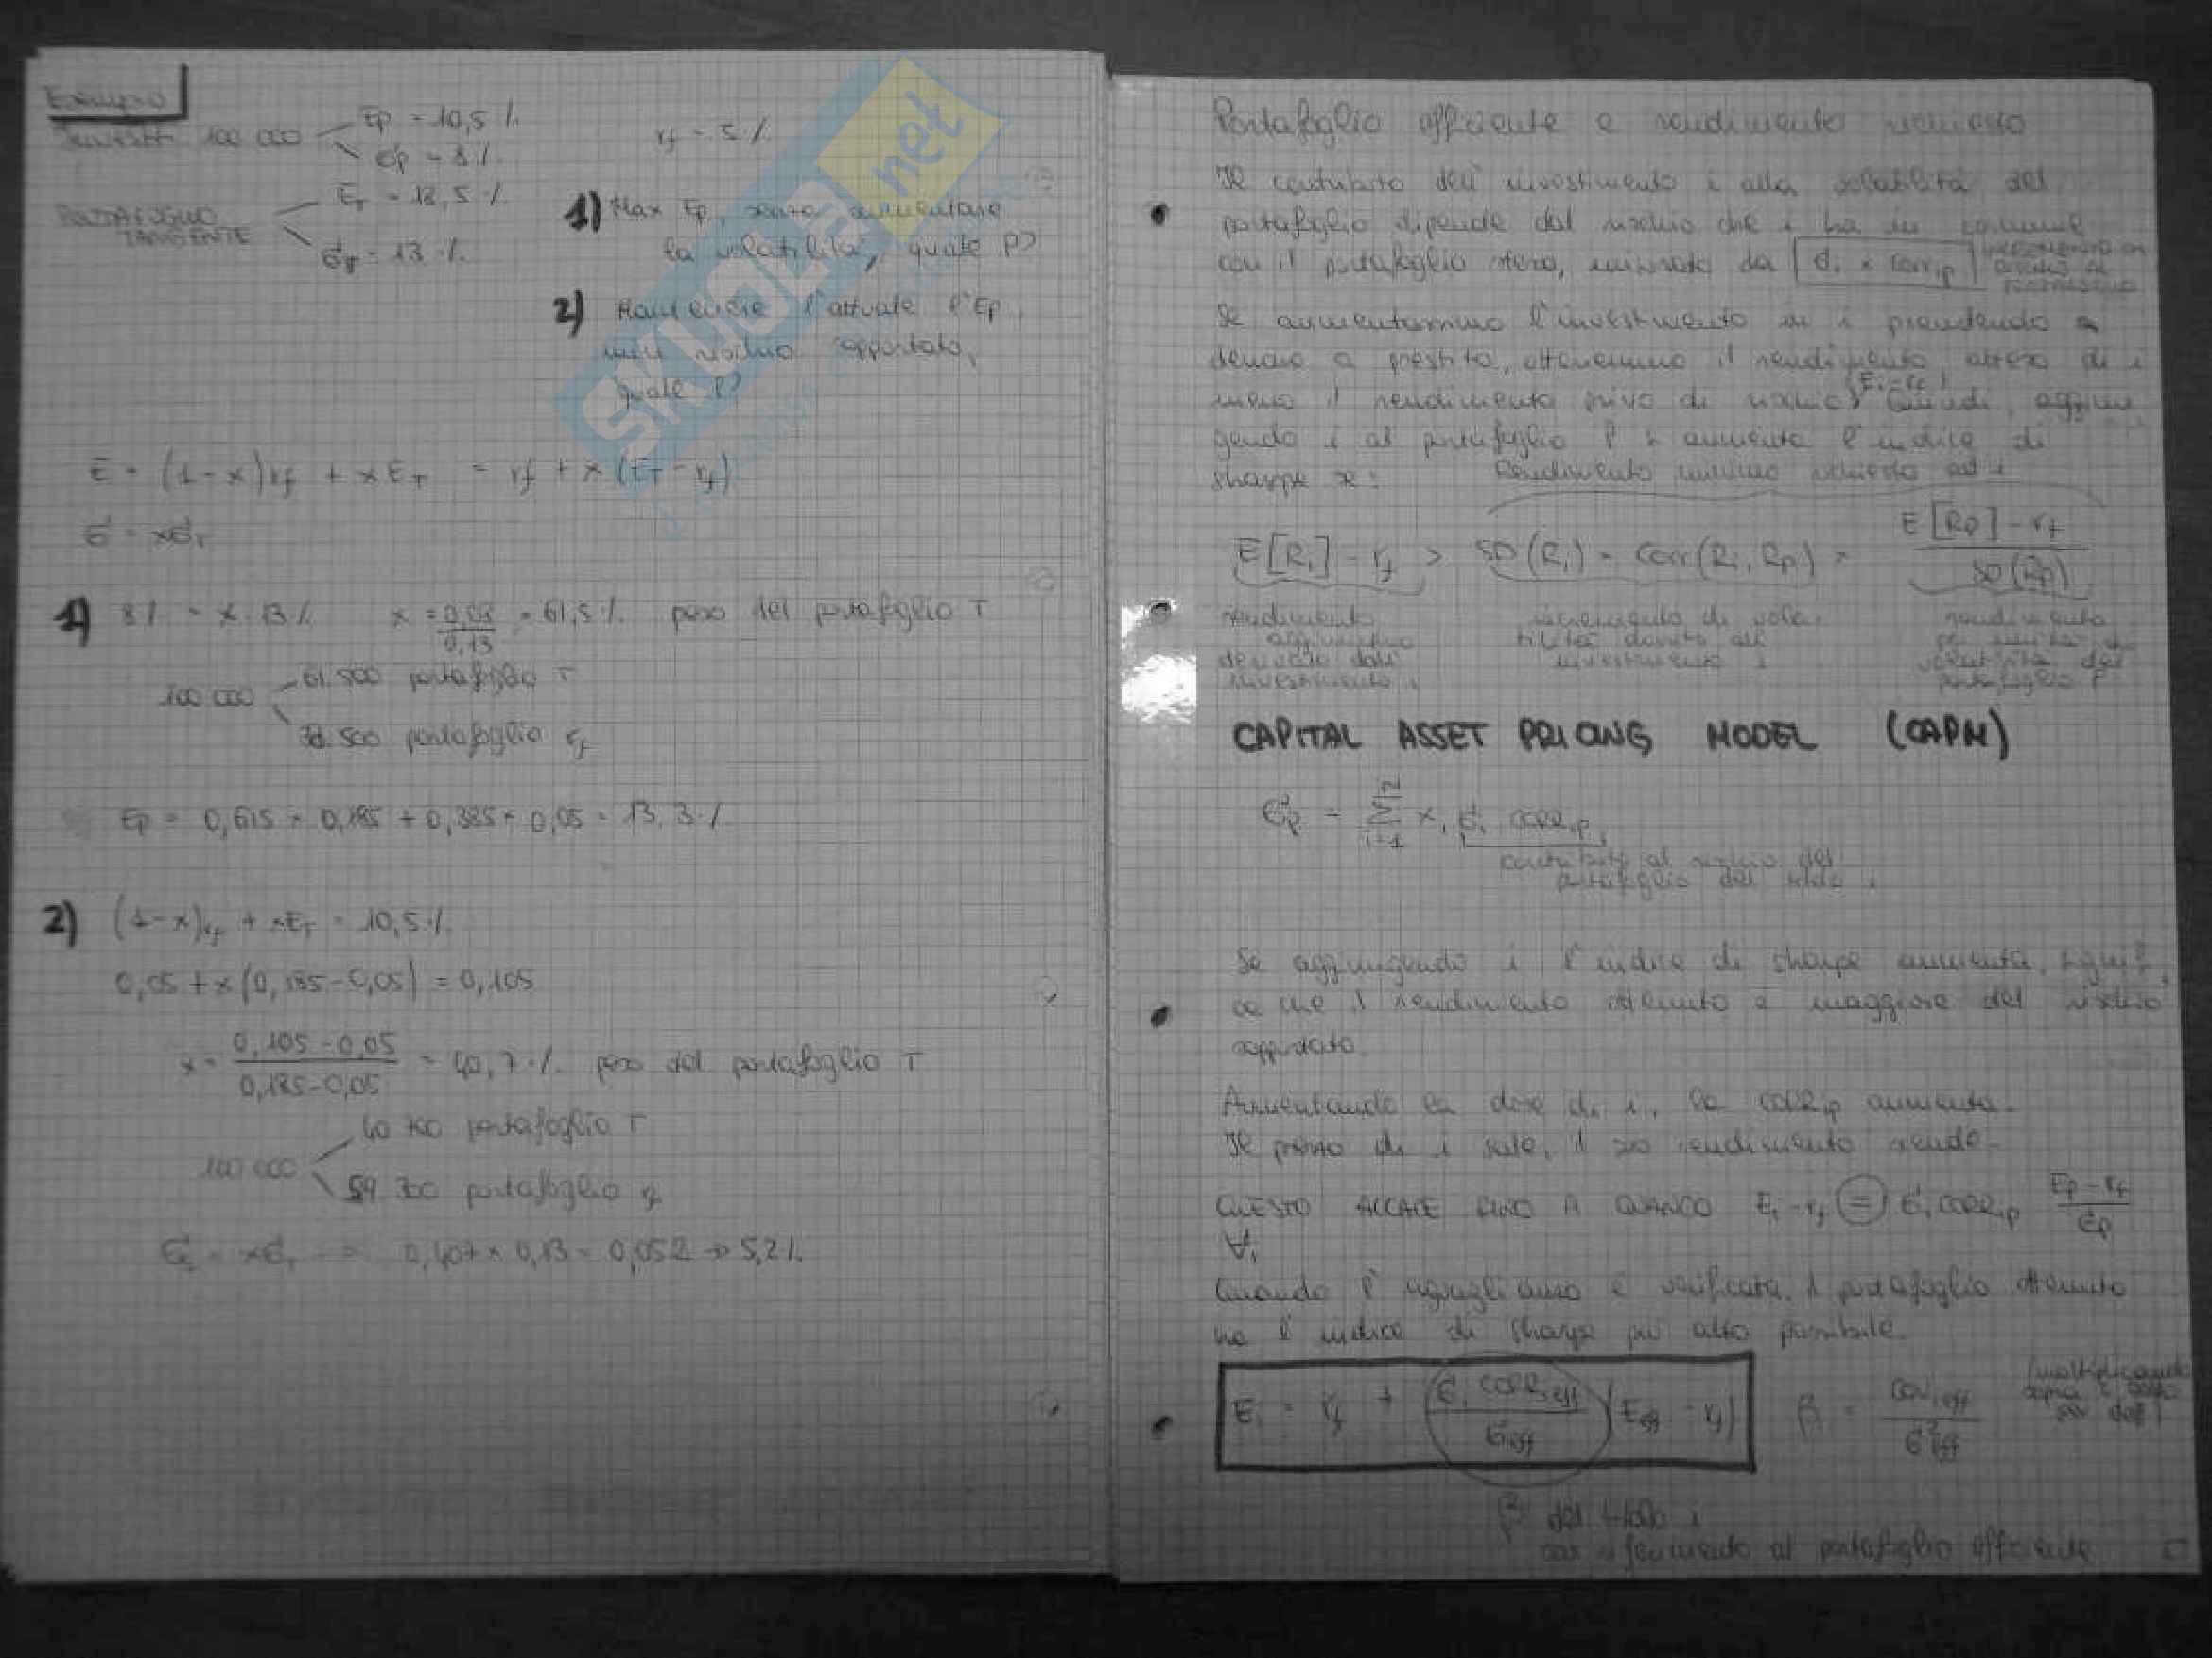 Esempio
Investiti 100 000
Ep = 10,5 %
σp = 8 %
rf = 5 %
PORTAFOGLIO TANGENTE
ET = 18,5 %
σT = 13 %
1) Max Ep, senza aumentare
la volatilità, quale P?
2) Mantenere l'attuale l'Ep,
min rischio apportato,
quale P?
SKUOLA.net
E = (1-x)rf + xET = rf + x(ET - rf)
σ = xσT
1) 8% = x·13% x = 0,08/0,13 = 61,5% peso del portafoglio T
100 000
61.500 portafoglio T
38.500 portafoglio rf
Ep = 0,615 × 0,185 + 0,385 × 0,05 = 13,3%
2) (1-x)rf + xET = 10,5%
0,05 + x(0,185-0,05) = 0,105
x = (0,105-0,05)/(0,185-0,05) = 40,7% peso del portafoglio T
100 000
40 700 portafoglio T
59 300 portafoglio rf
= xσT = 0,407 × 0,13 = 0,052 → 5,2%
Portafoglio efficiente e rendimento richiesto
Il contributo dell'investimento i alla volatilità del
portafoglio dipende dal rischio che i ha in comune
con il portafoglio stesso, misurato da σi × corrip
Se aumentassimo l'investimento in i prendendo
denaro a prestito, otterremmo il rendimento atteso di i
meno il rendimento privo di rischio (Ei-rf). Quindi, aggiun
gendo i al portafoglio P si aumenta l'indice di
sharpe se: Rendimento minimo richiesto ad i
E[Ri] - rf > SD(Ri) × Corr(Ri, Rp) × (E[Rp] - rf)/SD(Rp)
rendimento
aggiuntivo
derivato dall'
investimento i
incremento di vola-
tilità dovuto all'
investimento i
rendimento
per unità di
volatilità del
portafoglio P
CAPITAL ASSET PRICING MODEL (CAPM)
σp = Σ i=1 xi σi CORRip
contributo al rischio del
portafoglio del titolo i
Se aggiungendo i l'indice di sharpe aumenta, signifi
ca che il rendimento ottenuto è maggiore del rischio
apportato.
Aumentando la dose di i, la CORRip aumenta.
Il prezzo di i sale, il suo rendimento scende.
QUESTO ACCADE FINO A QUANDO Ei - rf = σi CORRip (Ep - rf)/σp
∀i
Quando l'uguaglianza è verificata, il portafoglio ottenuto
ha l'indice di Sharpe più alto possibile.
Ei = rf + (σi CORRi,eff/σeff)(Eeff - rf) βi = COVi,eff/σ²eff (moltiplicando sopra e sotto
β del titolo i
con riferimento al portafoglio efficiente